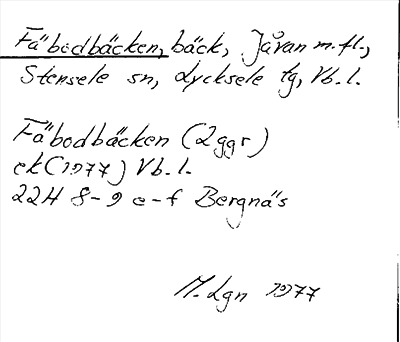 Fäbodbäcken, bäck, Jåvan m.fl.,
Stensele sn, Lycksele tg, Vb.l.
Fäbodbäcken (2ggr)
ek (1977) Vb.l.
22H 8-9 e-f Bergnäs
M. Lgn 1977